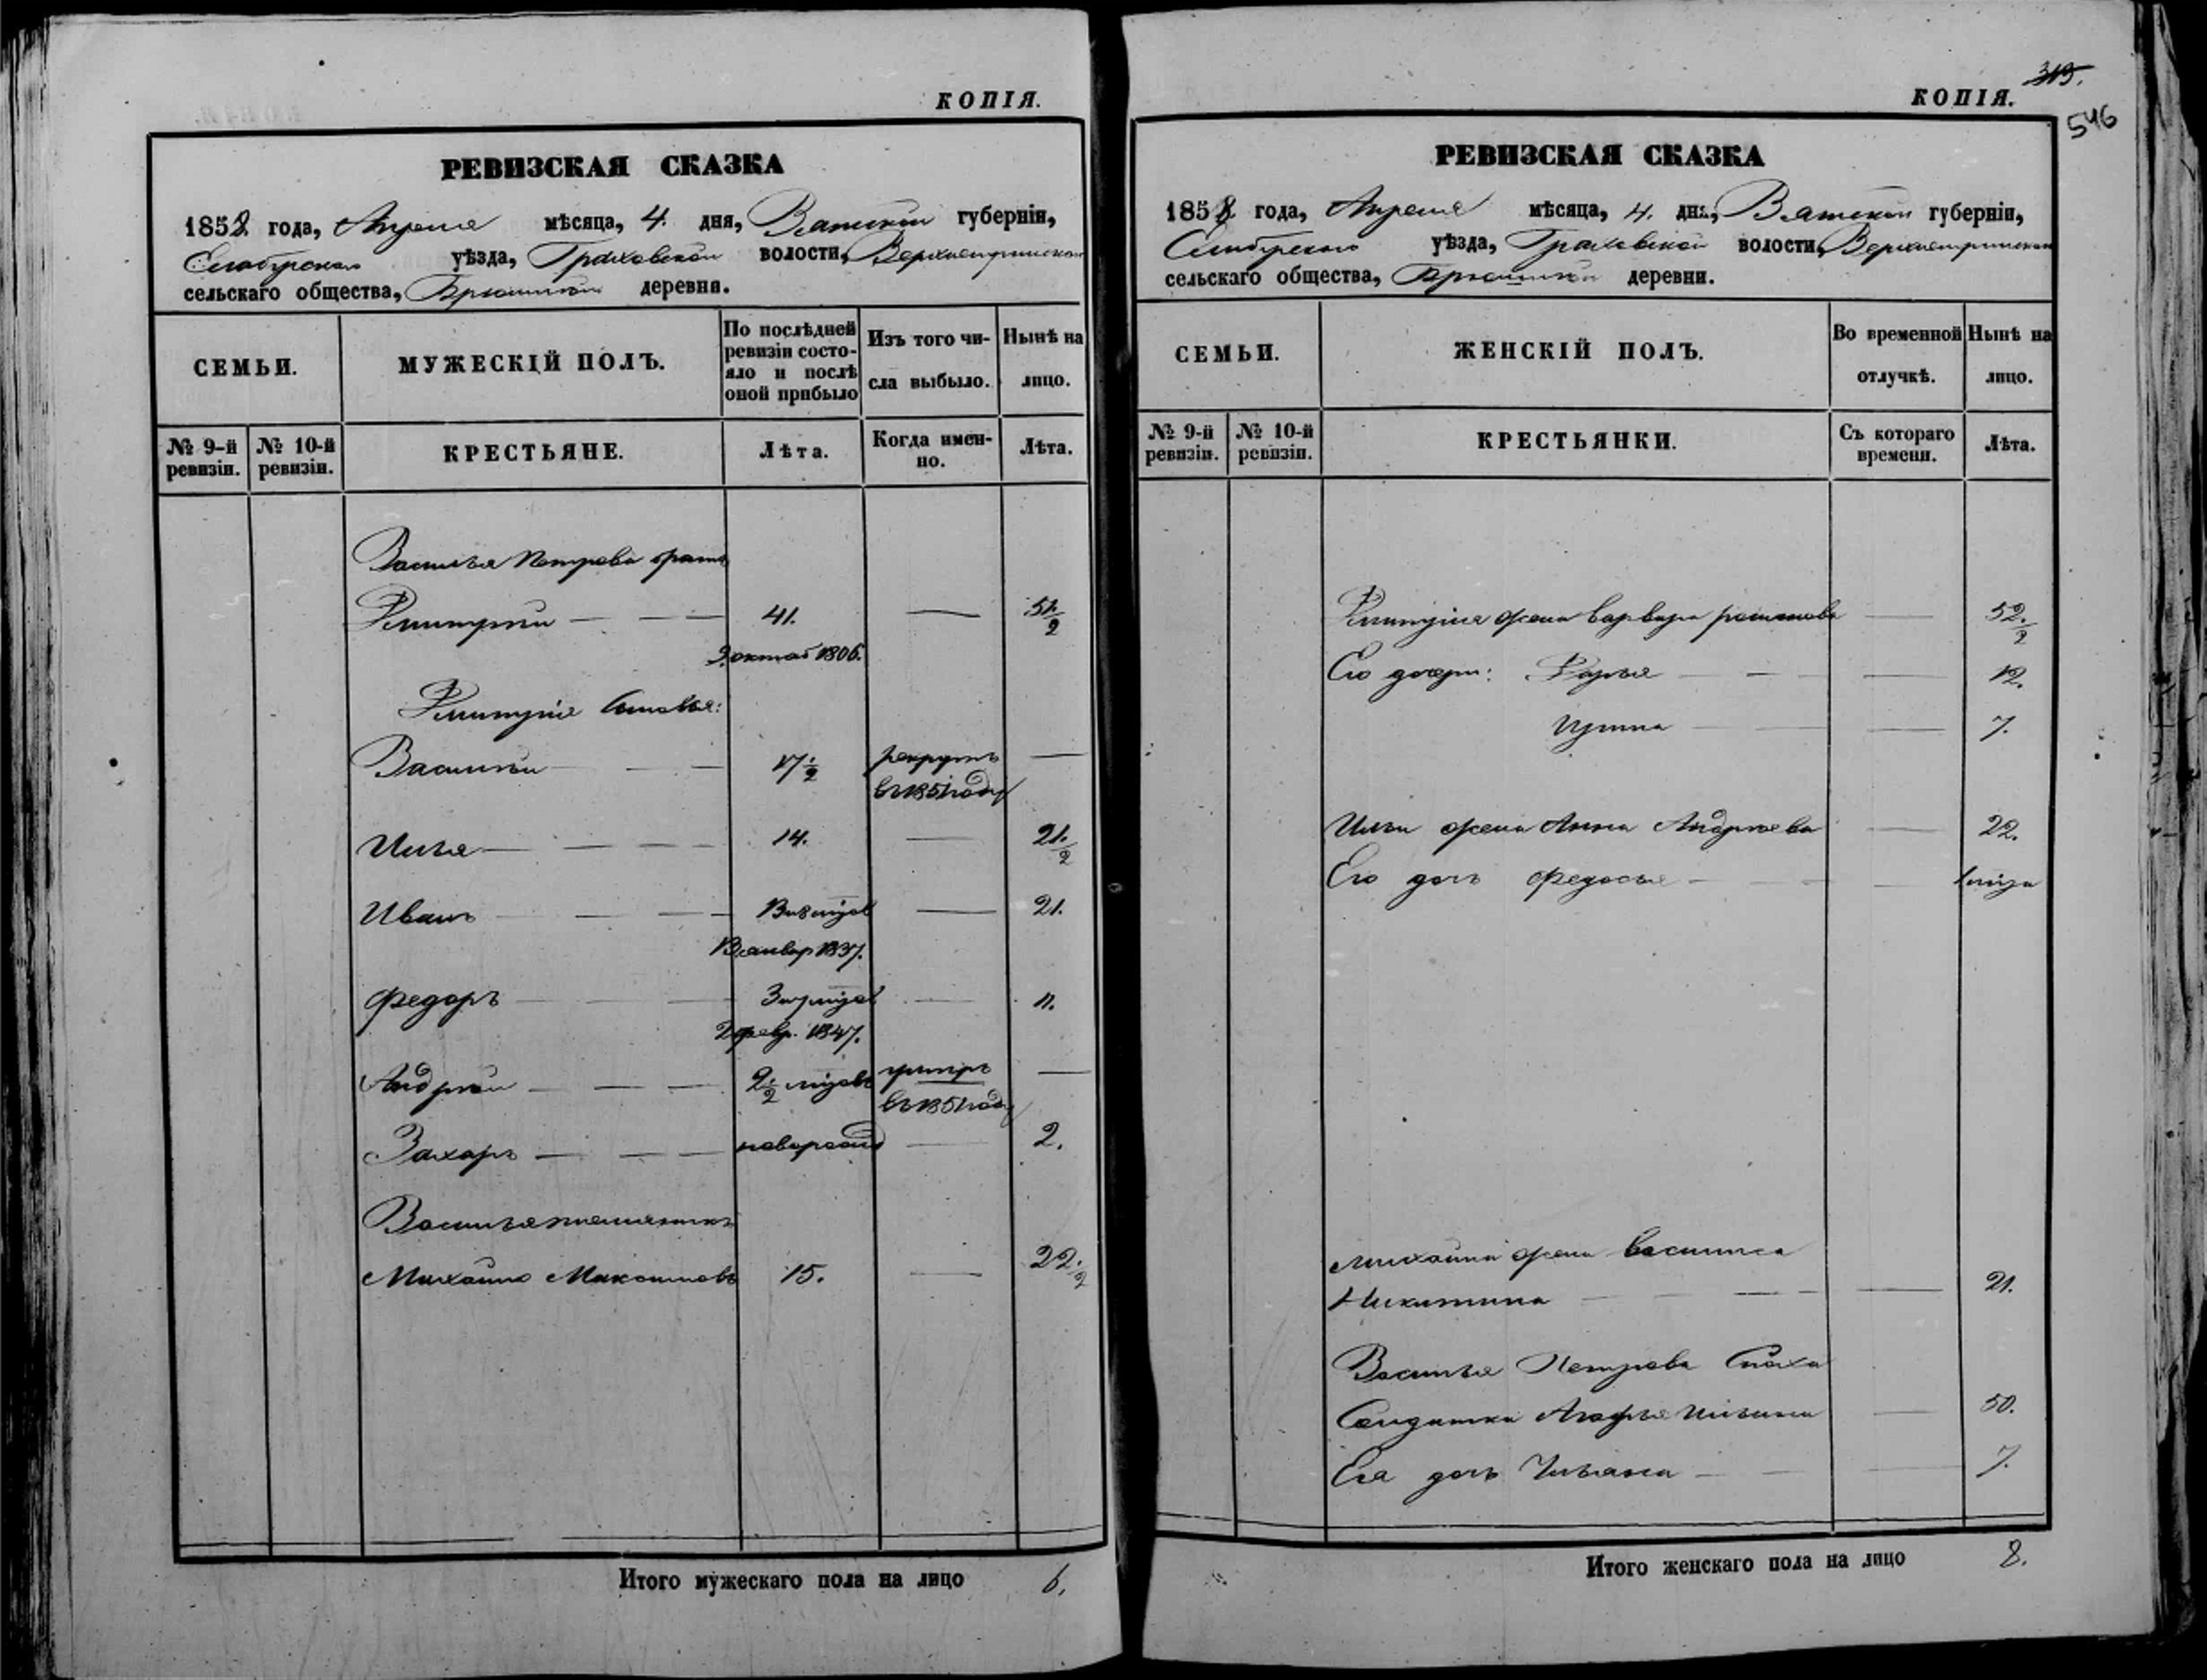 КОПІЯ.
РЕВИЗСКАЯ СКАЗКА
1858 года, Апреля мѣсяца, 4. дня, Вятской губерніи,
Елабугскаго уѣзда, Граховской волости,
сельскаго общества, деревни.
СЕМЬИ.
МУЖЕСКІЙ ПОЛЪ.
По послѣдней ревизіи состояло и послѣ оной прибыло
Изъ того числа выбыло.
Нынѣ на лицо.
№ 9-й ревизіи.
№ 10-й ревизіи.
КРЕСТЬЯНЕ.
Лѣта.
Когда именно.
Лѣта.
Василья Петрова братъ
Дмитрій 41. 51 1/2
9 октяб 1806.
Дмитрія сыновья:
Василій 17 1/2 рекрутъ
въ 1851 году
Илья 14. 21 1/2
Иванъ 21.
13 январ 1837.
Федоръ 11.
2 февр. 1847.
Андрей 2 1/2 умеръ
въ 1851 году
Захаръ новорожд 2.
Василья племянникъ
Михайло Максимовъ 15. 22 1/2
Итого мужескаго пола на лицо 6.
КОПІЯ.
319.
546
РЕВИЗСКАЯ СКАЗКА
1858 года, Апреля мѣсяца, 4. дня, Вятской губерніи,
Елабугскаго уѣзда, Граховской волости,
сельскаго общества, деревни.
СЕМЬИ.
ЖЕНСКІЙ ПОЛЪ.
Во временной отлучкѣ.
Нынѣ на лицо.
№ 9-й ревизіи.
№ 10-й ревизіи.
КРЕСТЬЯНКИ.
Съ котораго времени.
Лѣта.
Дмитрія жена Варвара 52 1/2
Его дочери: Дарья 12.
Ирина 7.
Ильи жена Анна Андреева 22.
Его дочь Федосья
Михайла жена Василиса
Никитина 21.
Василья Петрова сноха
Солдатка Агафья Ильина 50.
Ея дочь Ульяна 7.
Итого женскаго пола на лицо 8.